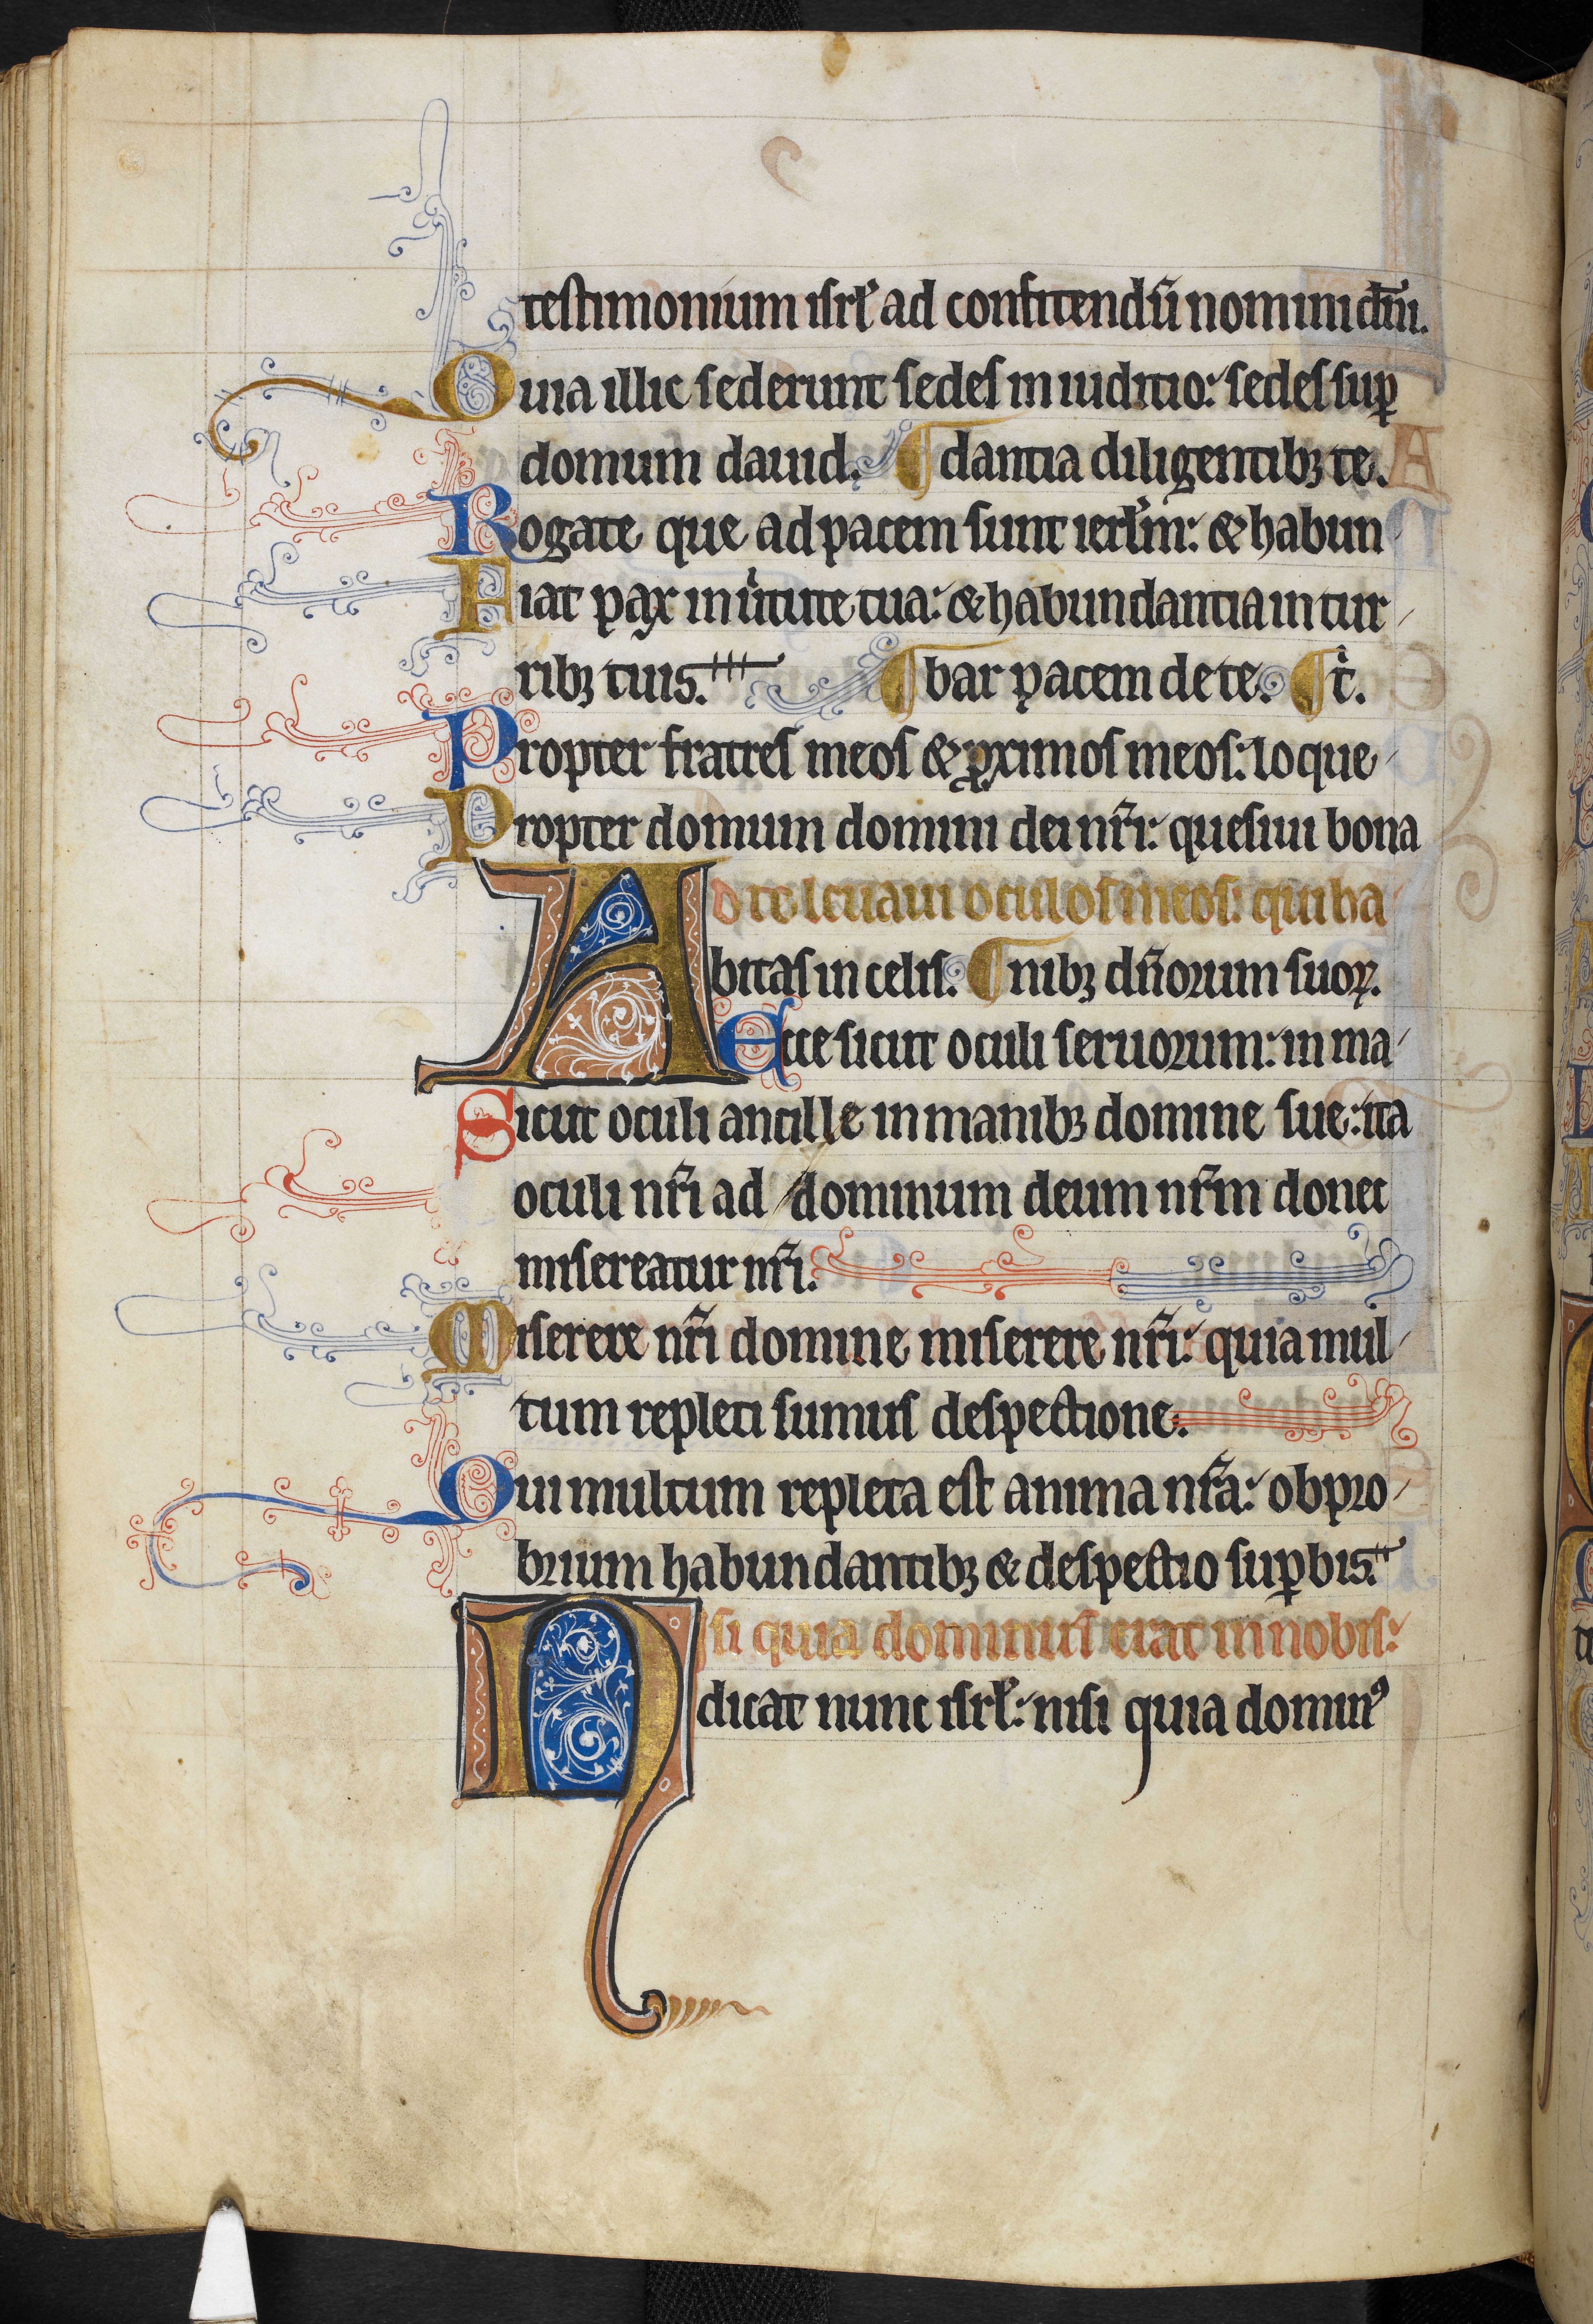 testimonium isrl̄ ad confitendū nomini dn̄i.
Quia illic sederunt sedes in iuditio: sedes sup̄
domum dauid. ¶ dantia diligentibꝫ te.
Rogate que ad pacem sunt ierl̄m: & habun
Fiat pax in uͥtute tua: & habundantia in tur
ribꝫ tuis. ¶ bar pacem de te. ¶ tͥ.
Propter fratres meos & ꝓximos meos: loque
Propter domum domini dei nr̄i: quesiui bona
Ad te leuaui oculos meos: qui ha
bitas in celis. ¶ nibꝫ dn̄orum suoꝝ.
Ecce sicut oculi seruorum: in ma
Sicut oculi ancille in manibꝫ domine sue: ita
oculi nr̄i ad dominum deum nr̄m donec
misereatur nr̄i.
Miserere nr̄i domine miserere nr̄i: quia mul
tum repleti sumus despectione.
Qui multum repleta est anima nr̄a: obpro
brium habundantibꝫ & despectio sup̄bis.
Nisi quia dominus erat in nobis:
dicat nunc isrl̄: nisi quia dominꝰ